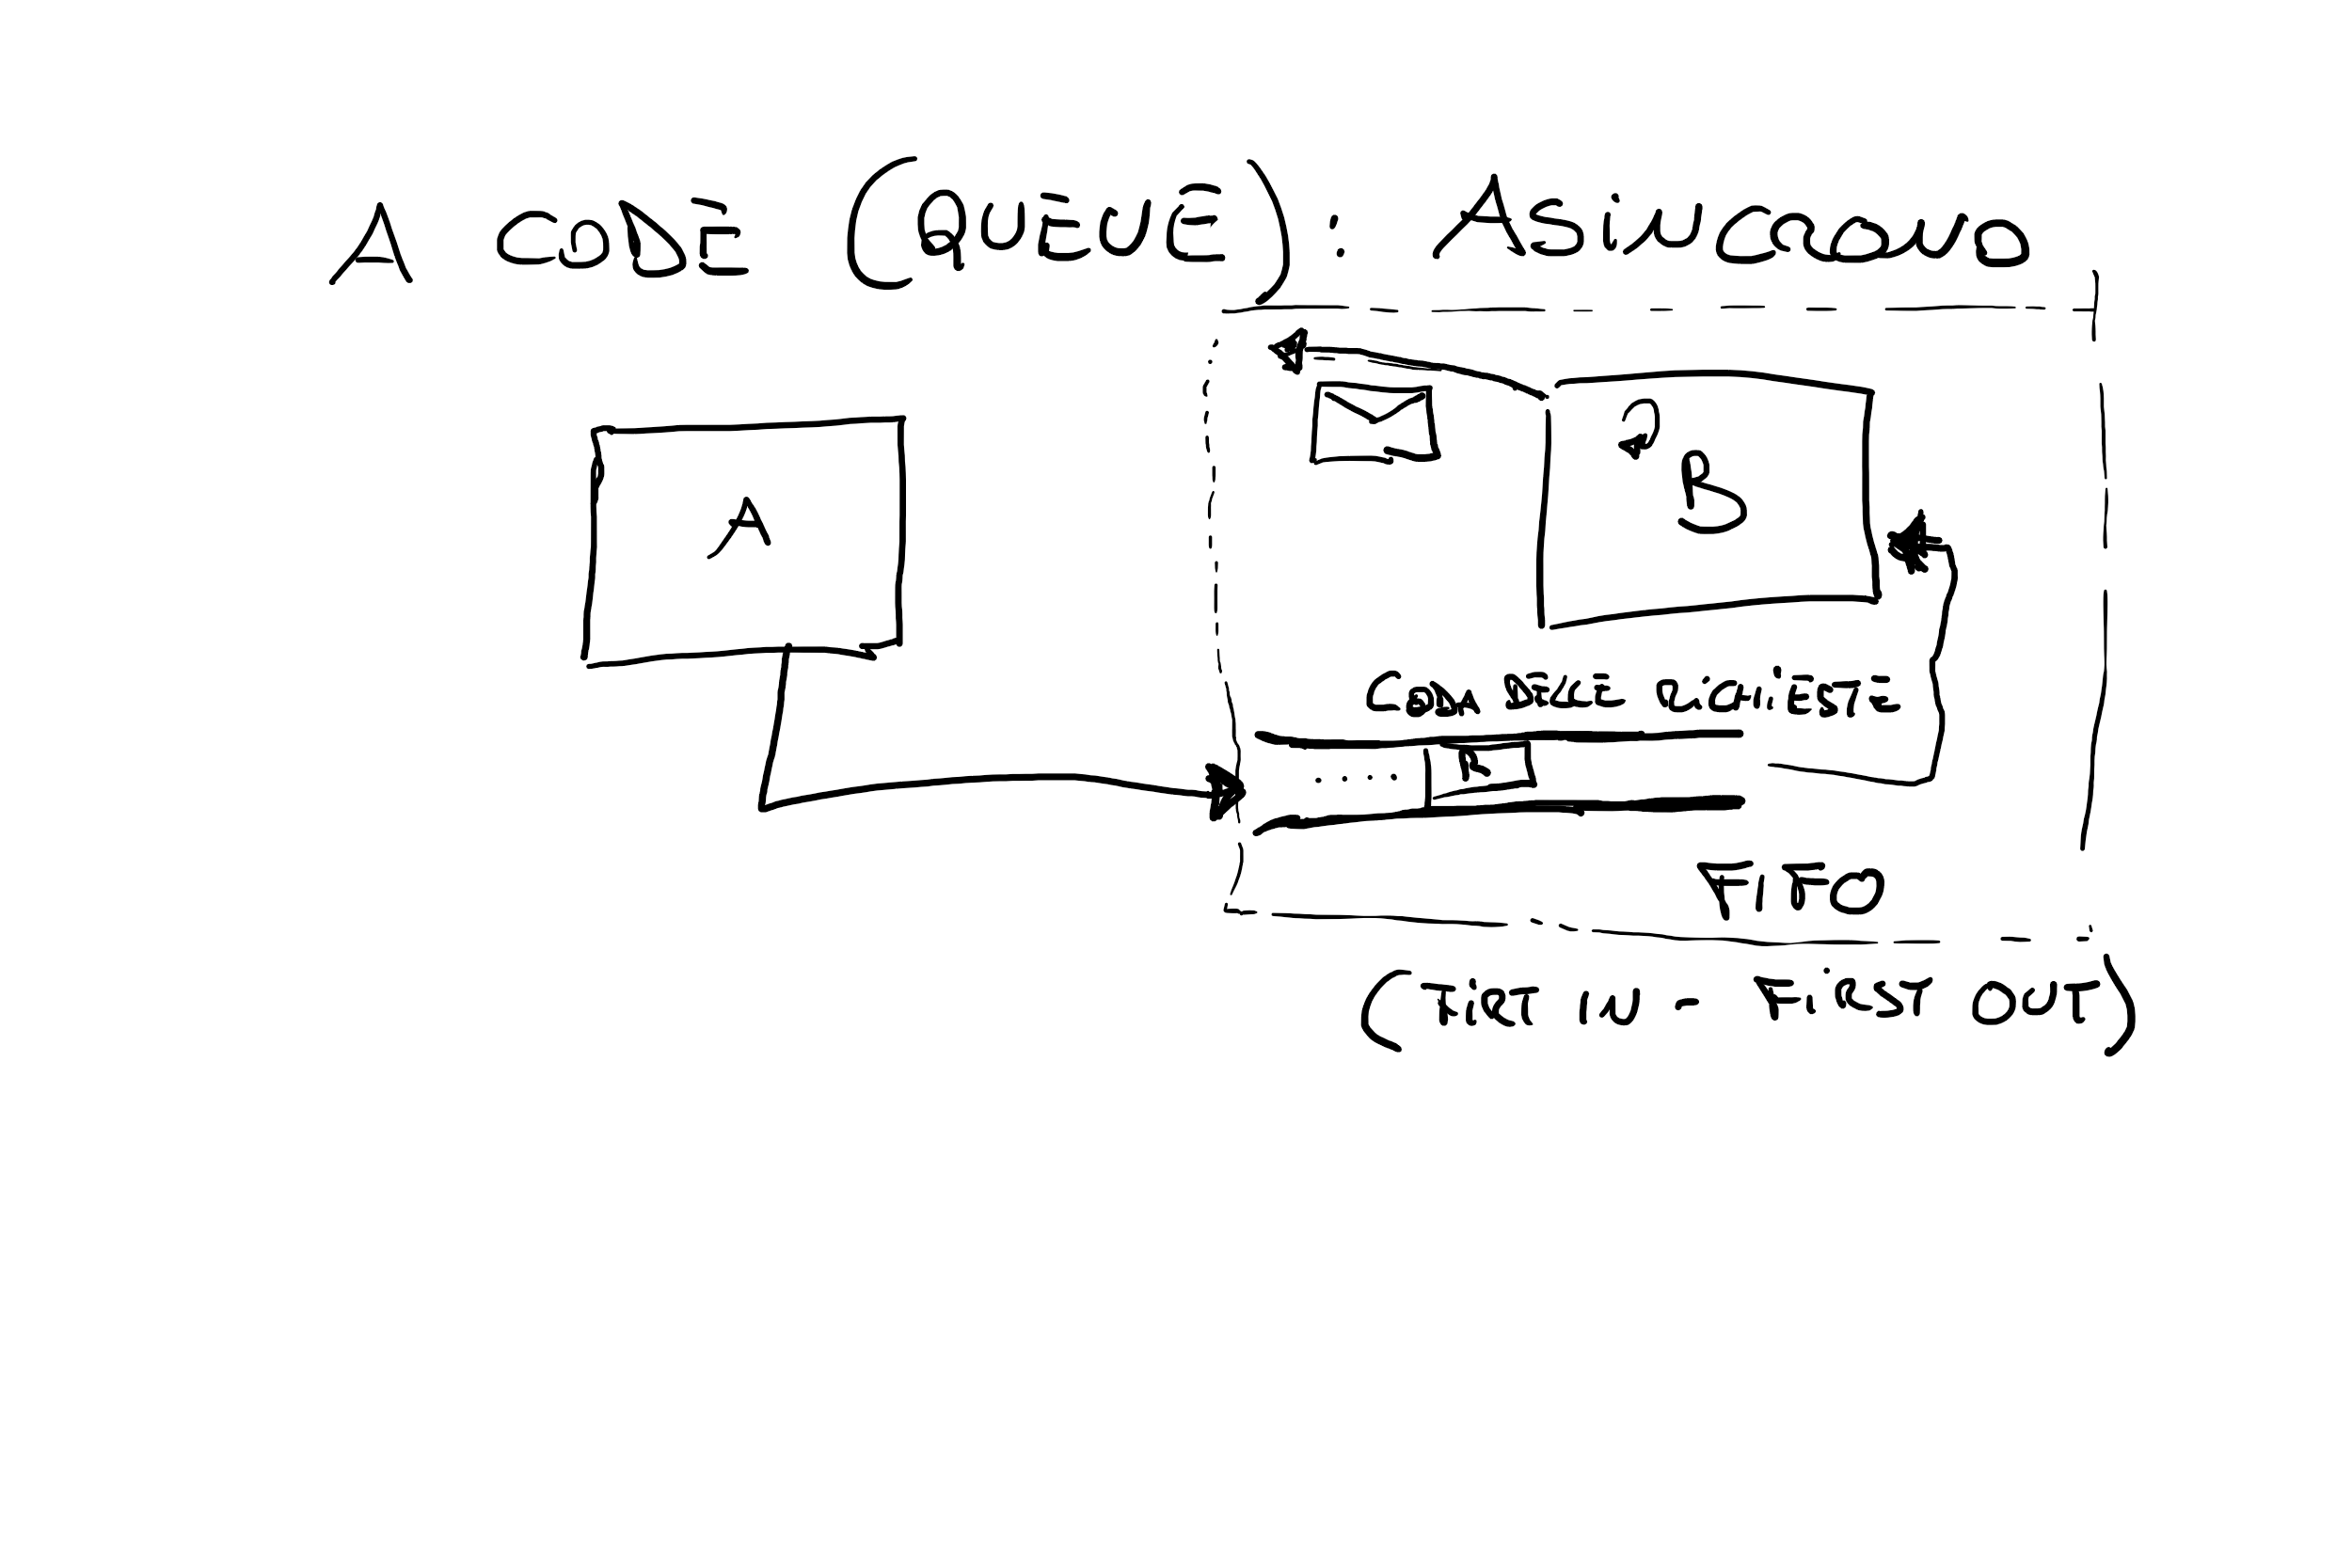 A CODE (QUEUE): ASINCRONO
A
B
CODA DELLE RICHIESTE
R
FIFO
(FIRST IN - FIRST OUT)